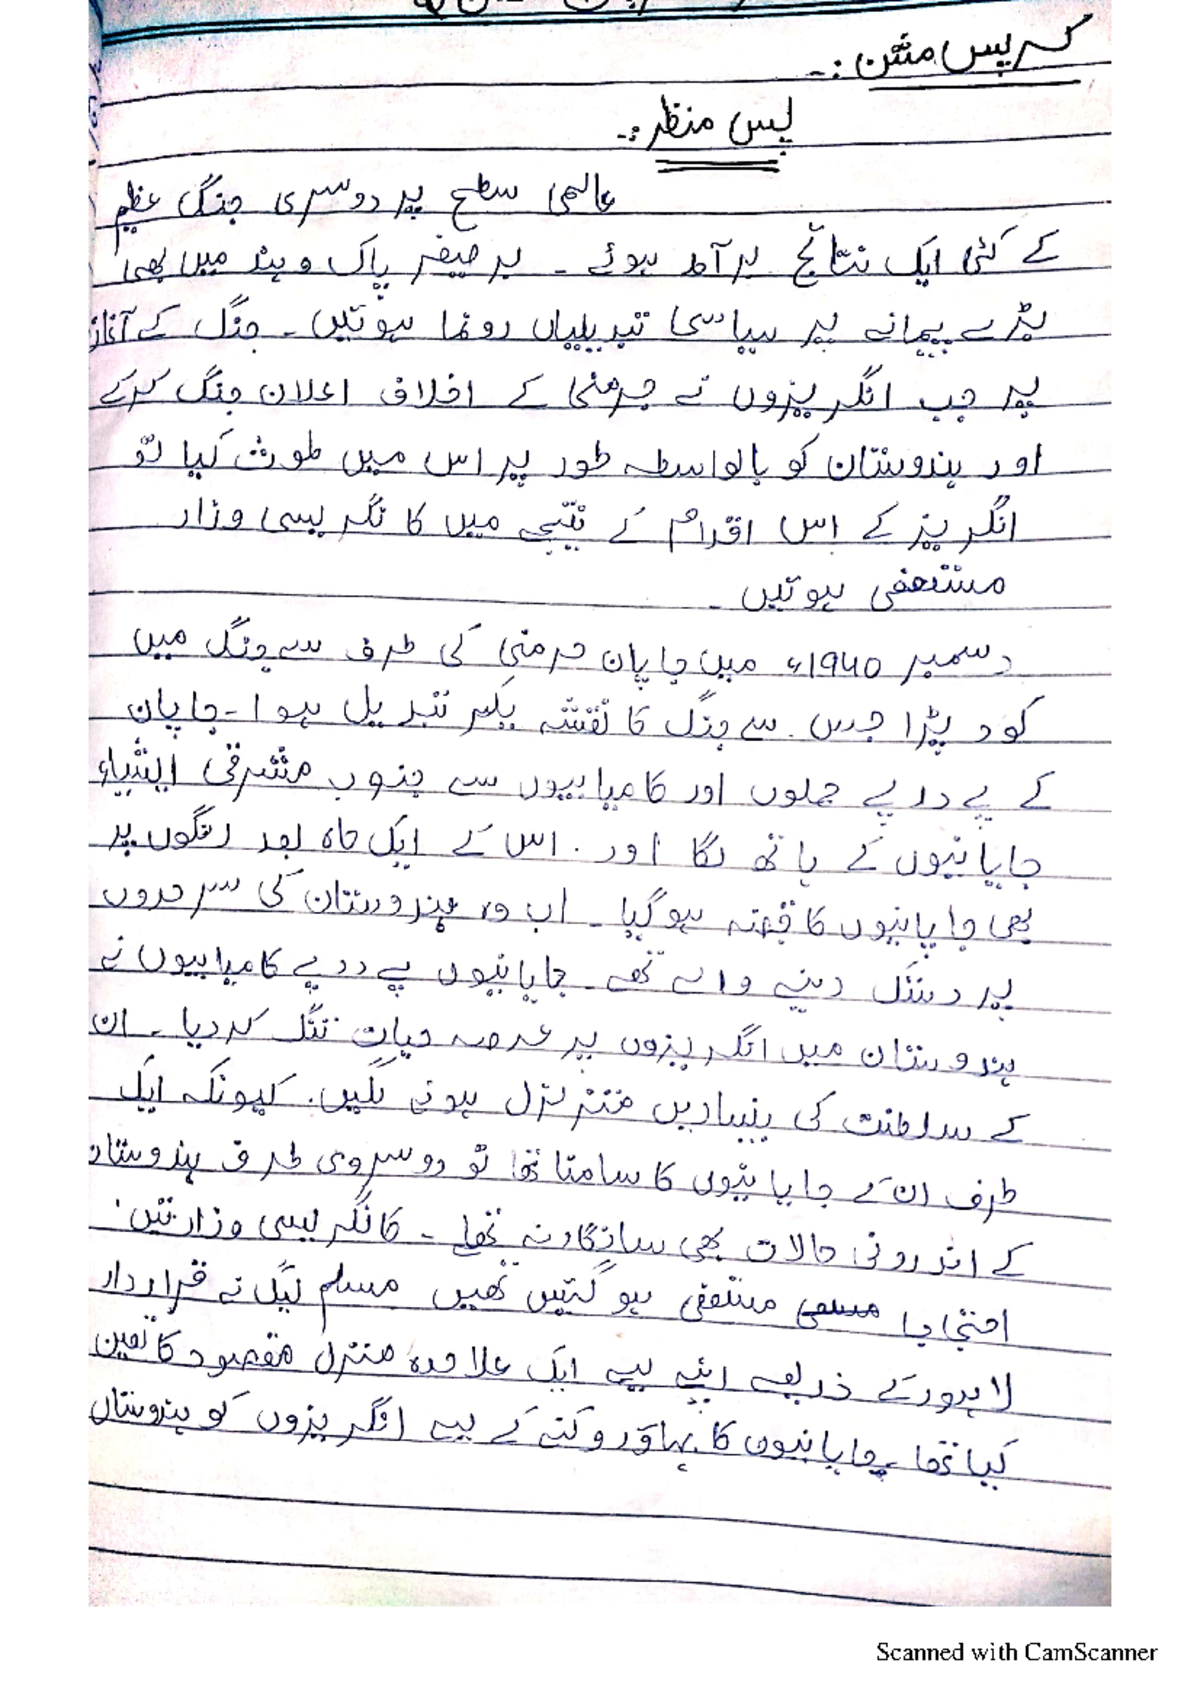 کرپس مشن :-
پس منظر :-
عالمی سطح پر دوسری جنگ عظیم
کے کئی ایک نتائج برآمد ہوئے ۔ برصغیر پاک و ہند میں بھی
بڑے پیمانہ پر سیاسی تبدیلیاں رونما ہوئیں ۔ جنگ کے آغاز
پر جب انگریزوں نے جرمنی کے اخلاف اعلان جنگ کرکے
اور ہندوستان کو بالواسطہ طور پر اس میں ملوث کیا تو
انگریز کے اس اقدام کے نتیجے میں کانگریسی وزار
مستعفی ہوئیں ۔
دسمبر 1940ء میں جاپان جرمنی کی طرف سے جنگ میں
کود پڑا جس سے جنگ کا نقشہ یکسر تبدیل ہوا ۔ جاپان
کے پے درپے حملوں اور کامیابیوں سے جنوب مشرقی ایشیاء
جاپانیوں کے ہاتھ لگا اور . اس کے ایک ماہ بعد رنگوں پر
بھی جاپانیوں کا قبضہ ہوگیا ۔ اب وہ ہندوستان کی سرحدوں
پر دستک دینے والے تھے ۔ جاپانیوں پے درپے کامیابیوں نے
ہندوستان میں انگریزوں پر عرصہ حیات تنگ کردیا ۔ ان
کے سلطنت کی بنیادیں متزلزل ہونے لگیں . کیونکہ ایک
طرف ان کے جاپانیوں کا سامنا تھا تو دوسروی طرف ہندوستان
کے اندرونی حالات بھی سازگار نہ تھے ۔ کانگریسی وزارتیں
احتجاجا مستعفی ہوگئیں تھیں مسلم لیگ نے قرارداد
لاہور کے ذریعے اپنے لیے ایک علاحدہ منزل مقصود کا تعین
کیا تھا ۔ جاپانیوں کا بہاؤ روکنے کے لیے انگریزوں کو ہندوستان
Scanned with CamScanner